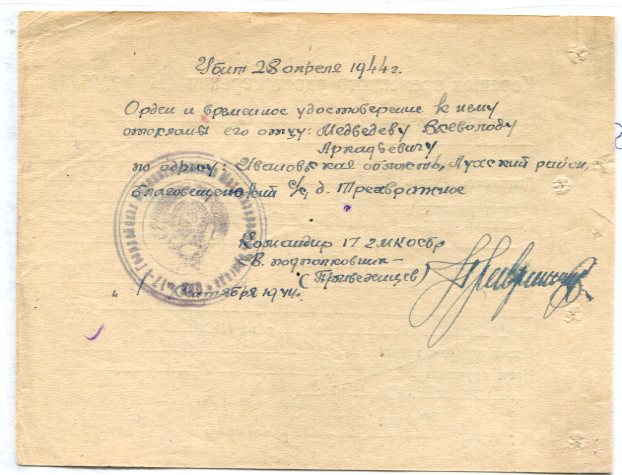 Убит 28 апреля 1944 г.
Орден и временное удостоверение к нему
отосланы его отцу: Медведеву Всеволоду
Аркадьевичу
по адресу: Ивановская область, Лухский район,
Благовещенский с/с, д.
Командир 17
подполковник —
(Привезенцев)
" " сентября 1944.